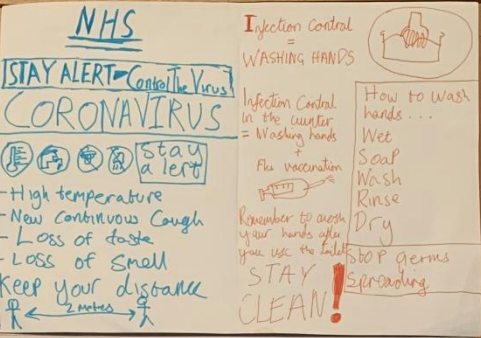 NHS
STAY ALERT - Control The Virus
CORONAVIRUS
Stay
alert
- High temperature
- New continuous Cough
- Loss of taste
- Loss of smell
Keep your distance
2 metres
Infection Control
=
WASHING HANDS
Infection Control
in the
= Washing hands
+
Flu vaccination
Remember to wash
your hands after
you use the toilet
STAY
CLEAN!
How to wash
hands ...
Wet
Soap
Wash
Rinse
Dry
Stop germs
Spreading